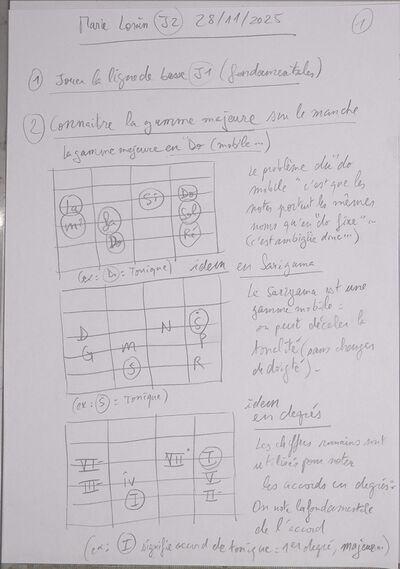 Marie Lorin J2 28/11/2025 1
1 Jouer la ligne de basse J1 (fondamentales)
2 Connaître la gamme majeure sur le manche
La gamme majeure en "Do (mobile...)
La Si Do
mi Fa Sol
Do Ré
Le problème du "do
mobile" c'est que les
notes portent les mêmes
noms qu'en "do fixe"...
(c'est ambigüe donc...)
(ex: Do = Tonique) idem en Sarigama
D N S
G M P
S R
Le Sarigama est une
gamme mobile :
on peut décaler la
tonalité (sans changer
de doigté).
(ex: S = Tonique)
idem
en degrés
VI VII° I
III IV V
I II
Les chiffres romains sont
utilisés pour noter
les accords en degrés"
On note la fondamentale
de l'accord
(ex: I signifie accord de tonique = 1er degré, majeur...)